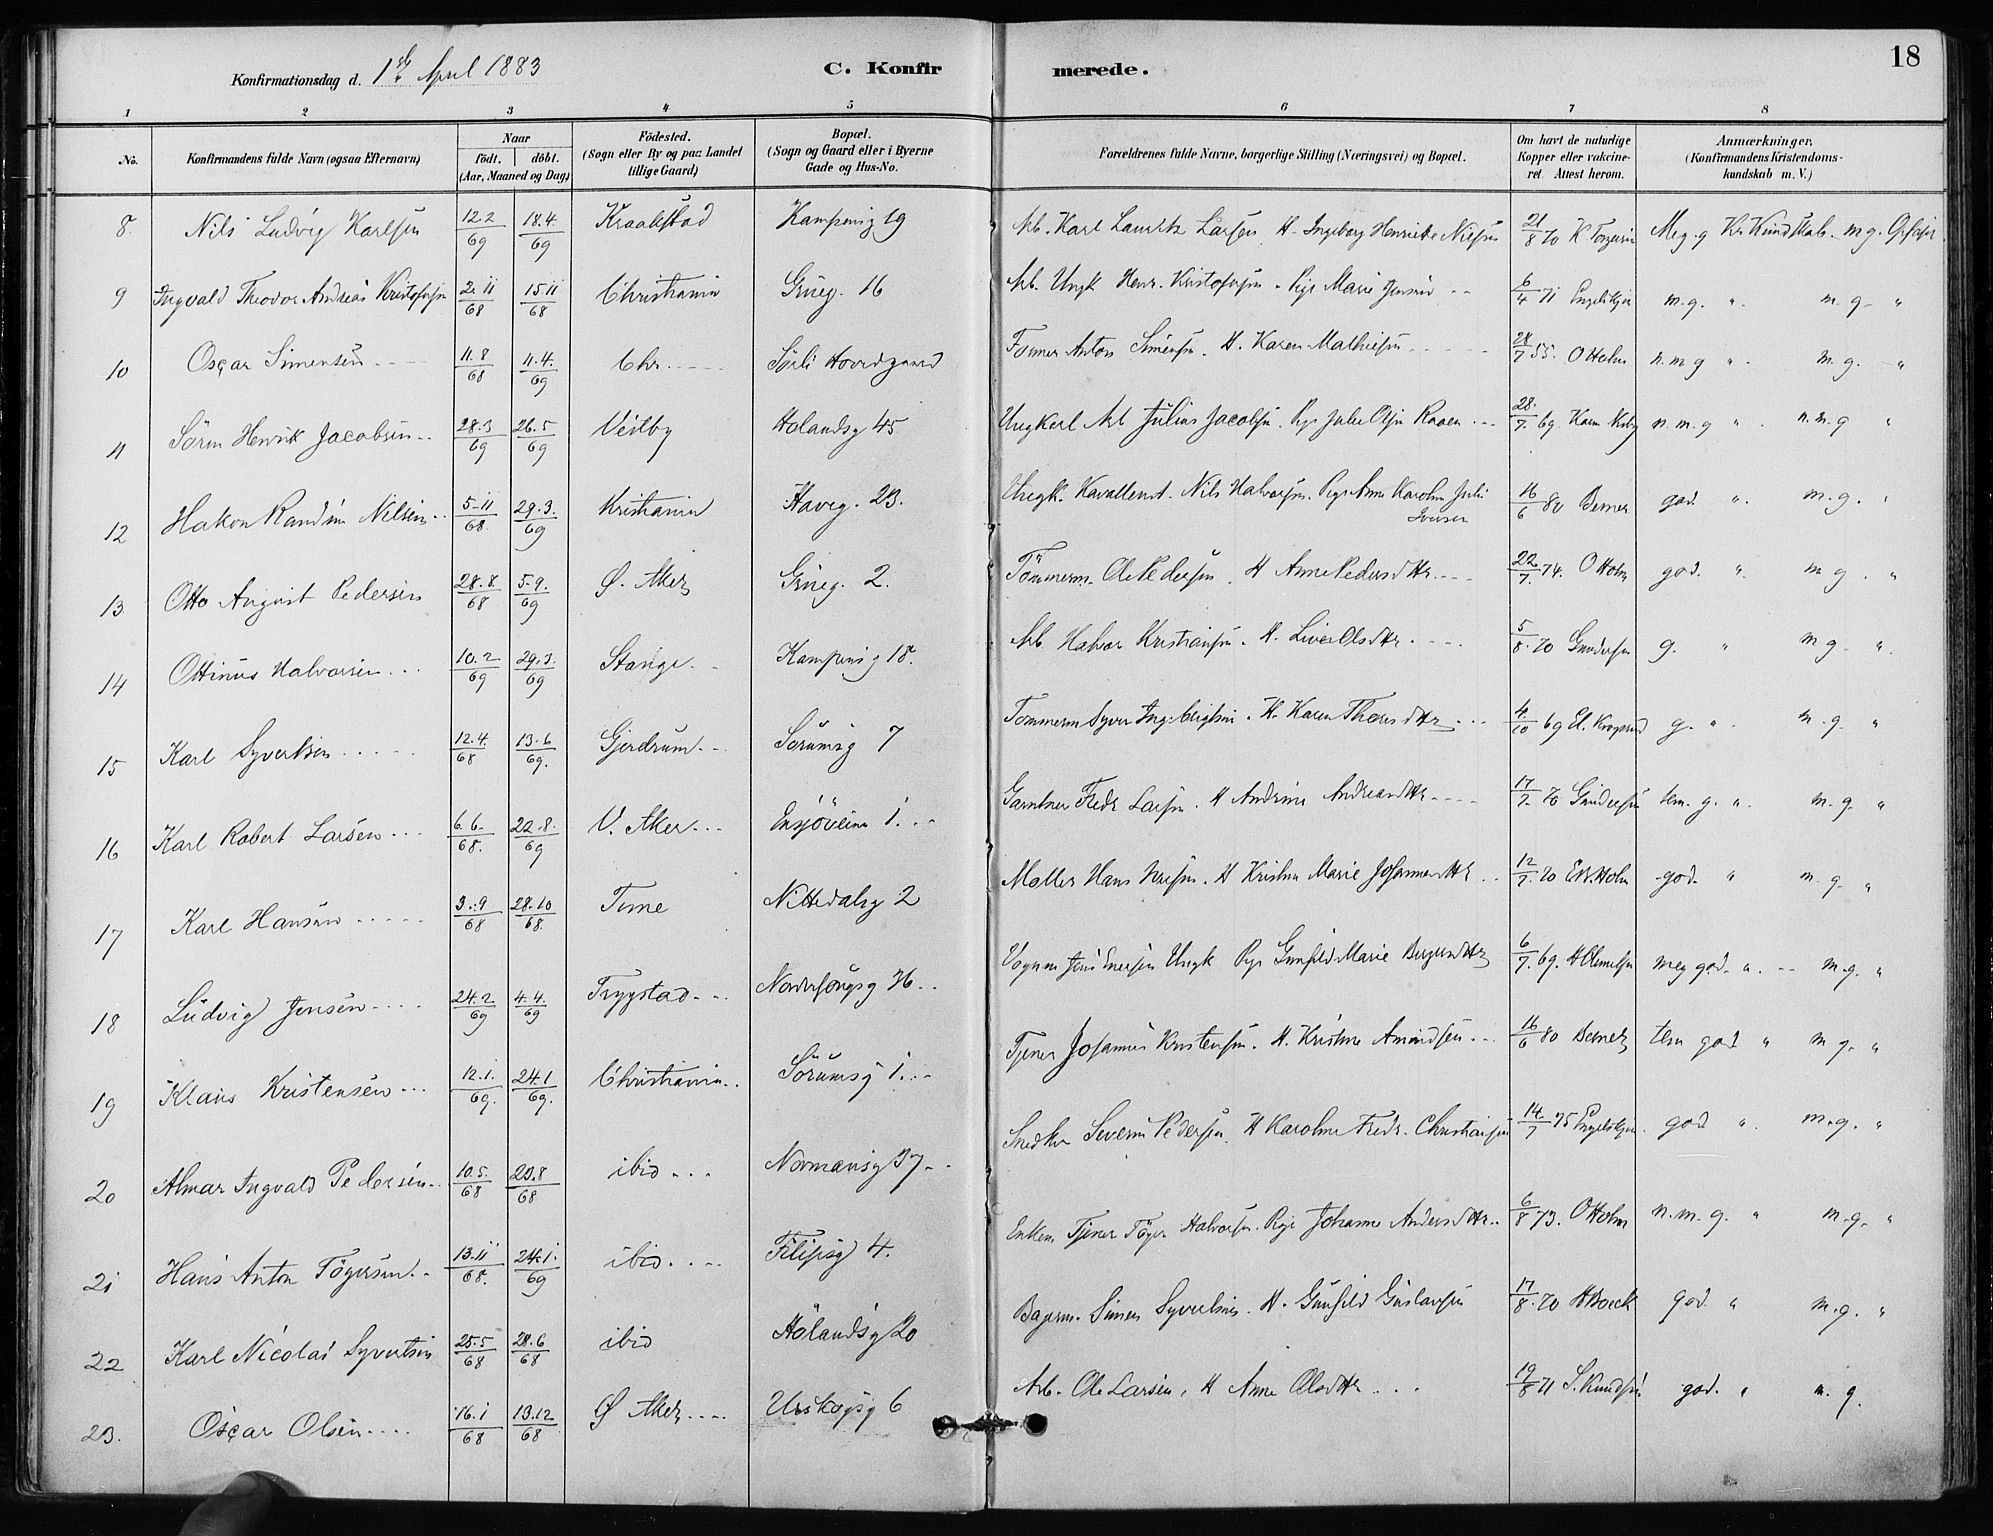 18
Konfirmationsdag d. 1ste April 1883 C. Konfirmerede.
1 2 3 4 5 6 7 8
No. Konfirmandens fulde Navn (ogsaa Efternavn) Naar födt. döbt. (Aar, Maaned og Dag) Födested. (Sogn eller By og paa Landet tillige Gaard) Bopæl. (Sogn og Gaard eller i Byerne Gade og Hus-No. Forældrenes fulde Navne, borgerlige Stilling (Næringsvei) og Bopæl. Om havt de naturlige Kopper eller vakcineret. Attest herom. Anmærkninger, (Konfirmandens Kristendomskundskab m. V.)
8. Nils Ludvig Karlsen 12.2/69 18.4./69 Kraakstad Kampensg 19 Arb. Karl Lauritz Larsen H. Ingeborg Henriette Nilsen 21/8 70 Meg. g Kr. Kundskab m g.
9 Ingvald Theodor Andreas Kristofersen 2.11/68 15.11/68 Christiania Grüneg. 16 Arb. Ungk Henr. Kristofersen. Pige Marie Jensen 6/4 71 Engelskjøn m.g. " m.g. "
10 Oscar Simensen 11.8/68 11.4./69 Chr. Sörli Hovedgaard Former Anton Simensen. H. Karen Mathisen 28/7 55. O Holm n.m g " m.g. "
11 Sören Henrik Jacobsen 28.3/69 26.5/69 Vestby Holandsg 45 Ungkarl Arb Julius Jacobsen. Pige Julie Olsen Raaen 28./7. 69 n.m.g " n.m.g "
12 Hakon Randin Nilsen 5-11/68 29.3./69 Kristiania Haveg. 23. Ungk. Kavallerist. Nils Halvorsen. Pige Anne Karoline Julie Iversen 16/6 80 Berner god. " m.g. "
13. Otto August Pedersen 28.8./68 5.9./69 Ø. Aker Grüneg. 2. Tömmerm. Ole Pedersen H Anne Pedersdttr. 22/7. 74. O Holm god. " m g. "
14 Ottinus Halvorsen 10.2/69 29.3./69 Stange Kampensg 18. Arb. Halvor Kristiansen. H. Live Olsdttr. 5/8. 70 Gundersen g. " m g. "
15 Karl Syvertsen 12.4./68 13.6/69. Gjerdrum Sörumsg 7 Tömmerm Syver Ingebrigtsen. H. Karen Thoresdttr 4/10 69 g. " m.g. "
16 Karl Robert Larsen 6.6./68. 22.8./69 V. Aker Ensjöveien 1. Gartner Fredr Larsen. H Andrine Andreasdttr 17/7. 70 Gundersen tem. g. " m.g. "
17 Karl Hansen 3.9/68 28.10/68. Time Nittedalsg 2 Møller Hans Nilsen. H Kristine Marie Johannesdttr 12/7. 70 Holm god. " m.g. "
18 Ludvig Jensen 24.2/69 4.4./69 Trygstad Nordesongsg 36 Vognm Jens Ungk Pige Gunhild Marie Birgersdttr 6/7. 69. meg god. " m.g. "
19 Klaus Kristensen 12.1./69. 24.1/69. Christiania Sörumsg 1. Tjener Johannes Kristensen. H. Kristine Amundsen 16/6 80 Berner tem god " m g. "
20 Almar Ingvald Pedersen 10.5./68 23.8/68 ibid Normansg 37 Snedker Severin Pedersen H Karoline Fredr. Christiansen 14/7 75 Engelskjøn. god " m.g. "
21 Hans Anton Tögersen 13.11/68. 24.1./69 ibid Filipsg 4. Enkem. Tjener Töger Halvorsen. Pige Johanne Andersdttr 6/8 73. O Holm n.m.g. " m.g. "
22 Karl Nicolai Syvertsen 25.5/68 28.6/68 ibid Hölandsg 20 Bagerm. Simen Syvertsen. H. Gunhild Gustavsen 17/8. 70 H Boeck god. " m.g. "
23. Oscar Olsen 16.1/68 13.12/68 Ø Aker Urskogsg 6 Arb. Ole Larsen, H Anne Olsdttr. 19/8 71 S. Knudsen god. " m. g.